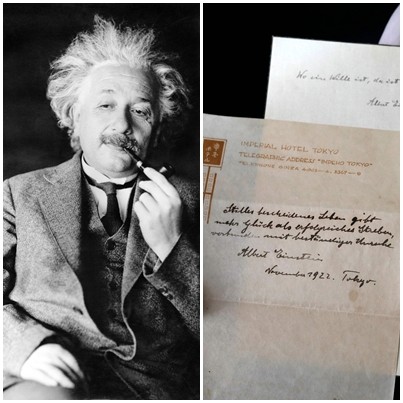 Wo ein Wille ist, da ist
Albert
IMPERIAL HOTEL TOKYO
TELEGRAPHIC ADDRESS "IMPEHO TOKYO"
Stilles bescheidenes Leben gibt
mehr Glück als erfolgreiches Streben,
verbunden mit beständiger Unruhe.
Albert Einstein
November 1922. Tokyo.